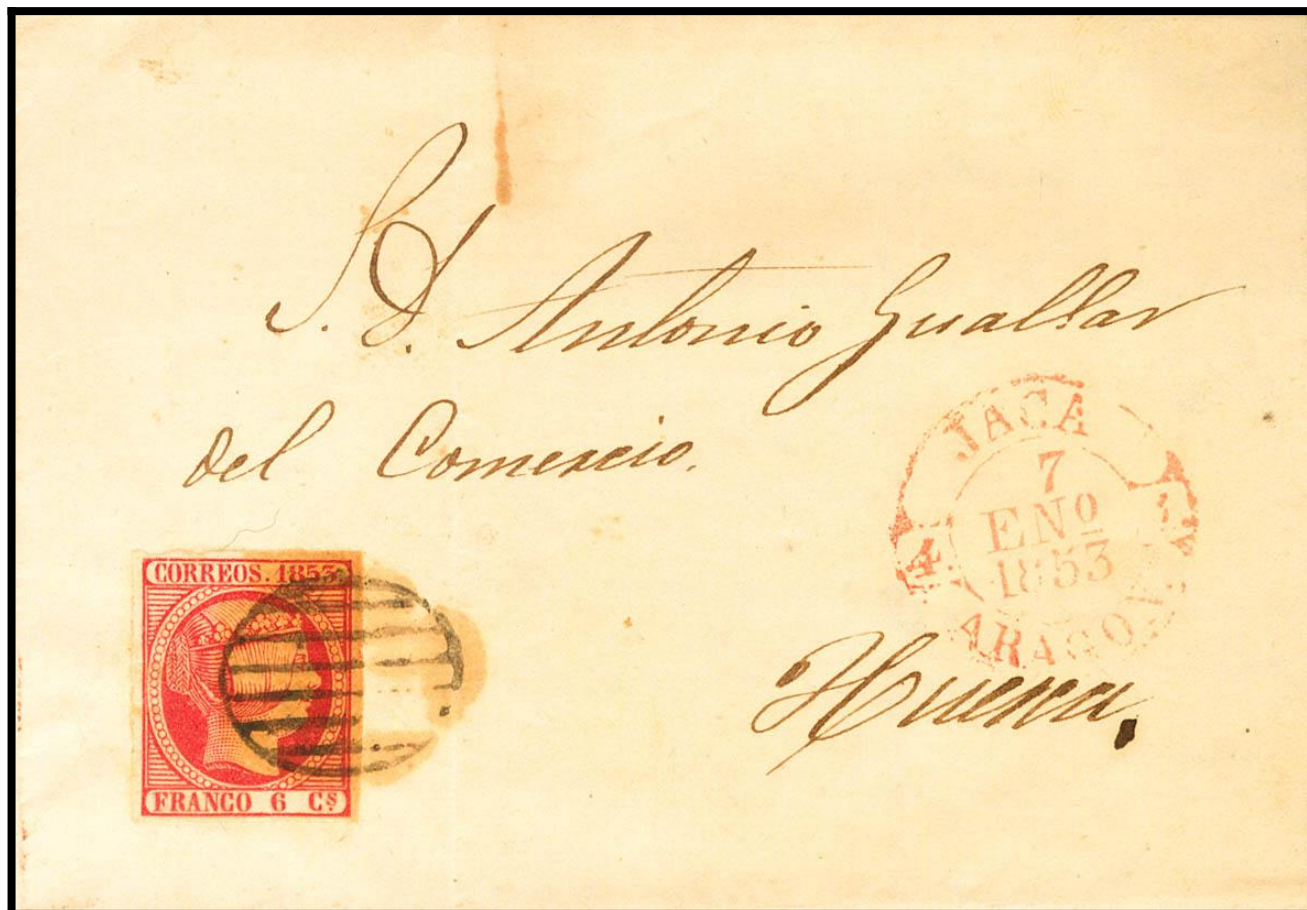 S. D. Antonio Guallar
del Comercio.
JACA
7
ENº
1853
ARAGON
CORREOS. 1853
FRANCO 6 Cs
Huesca.